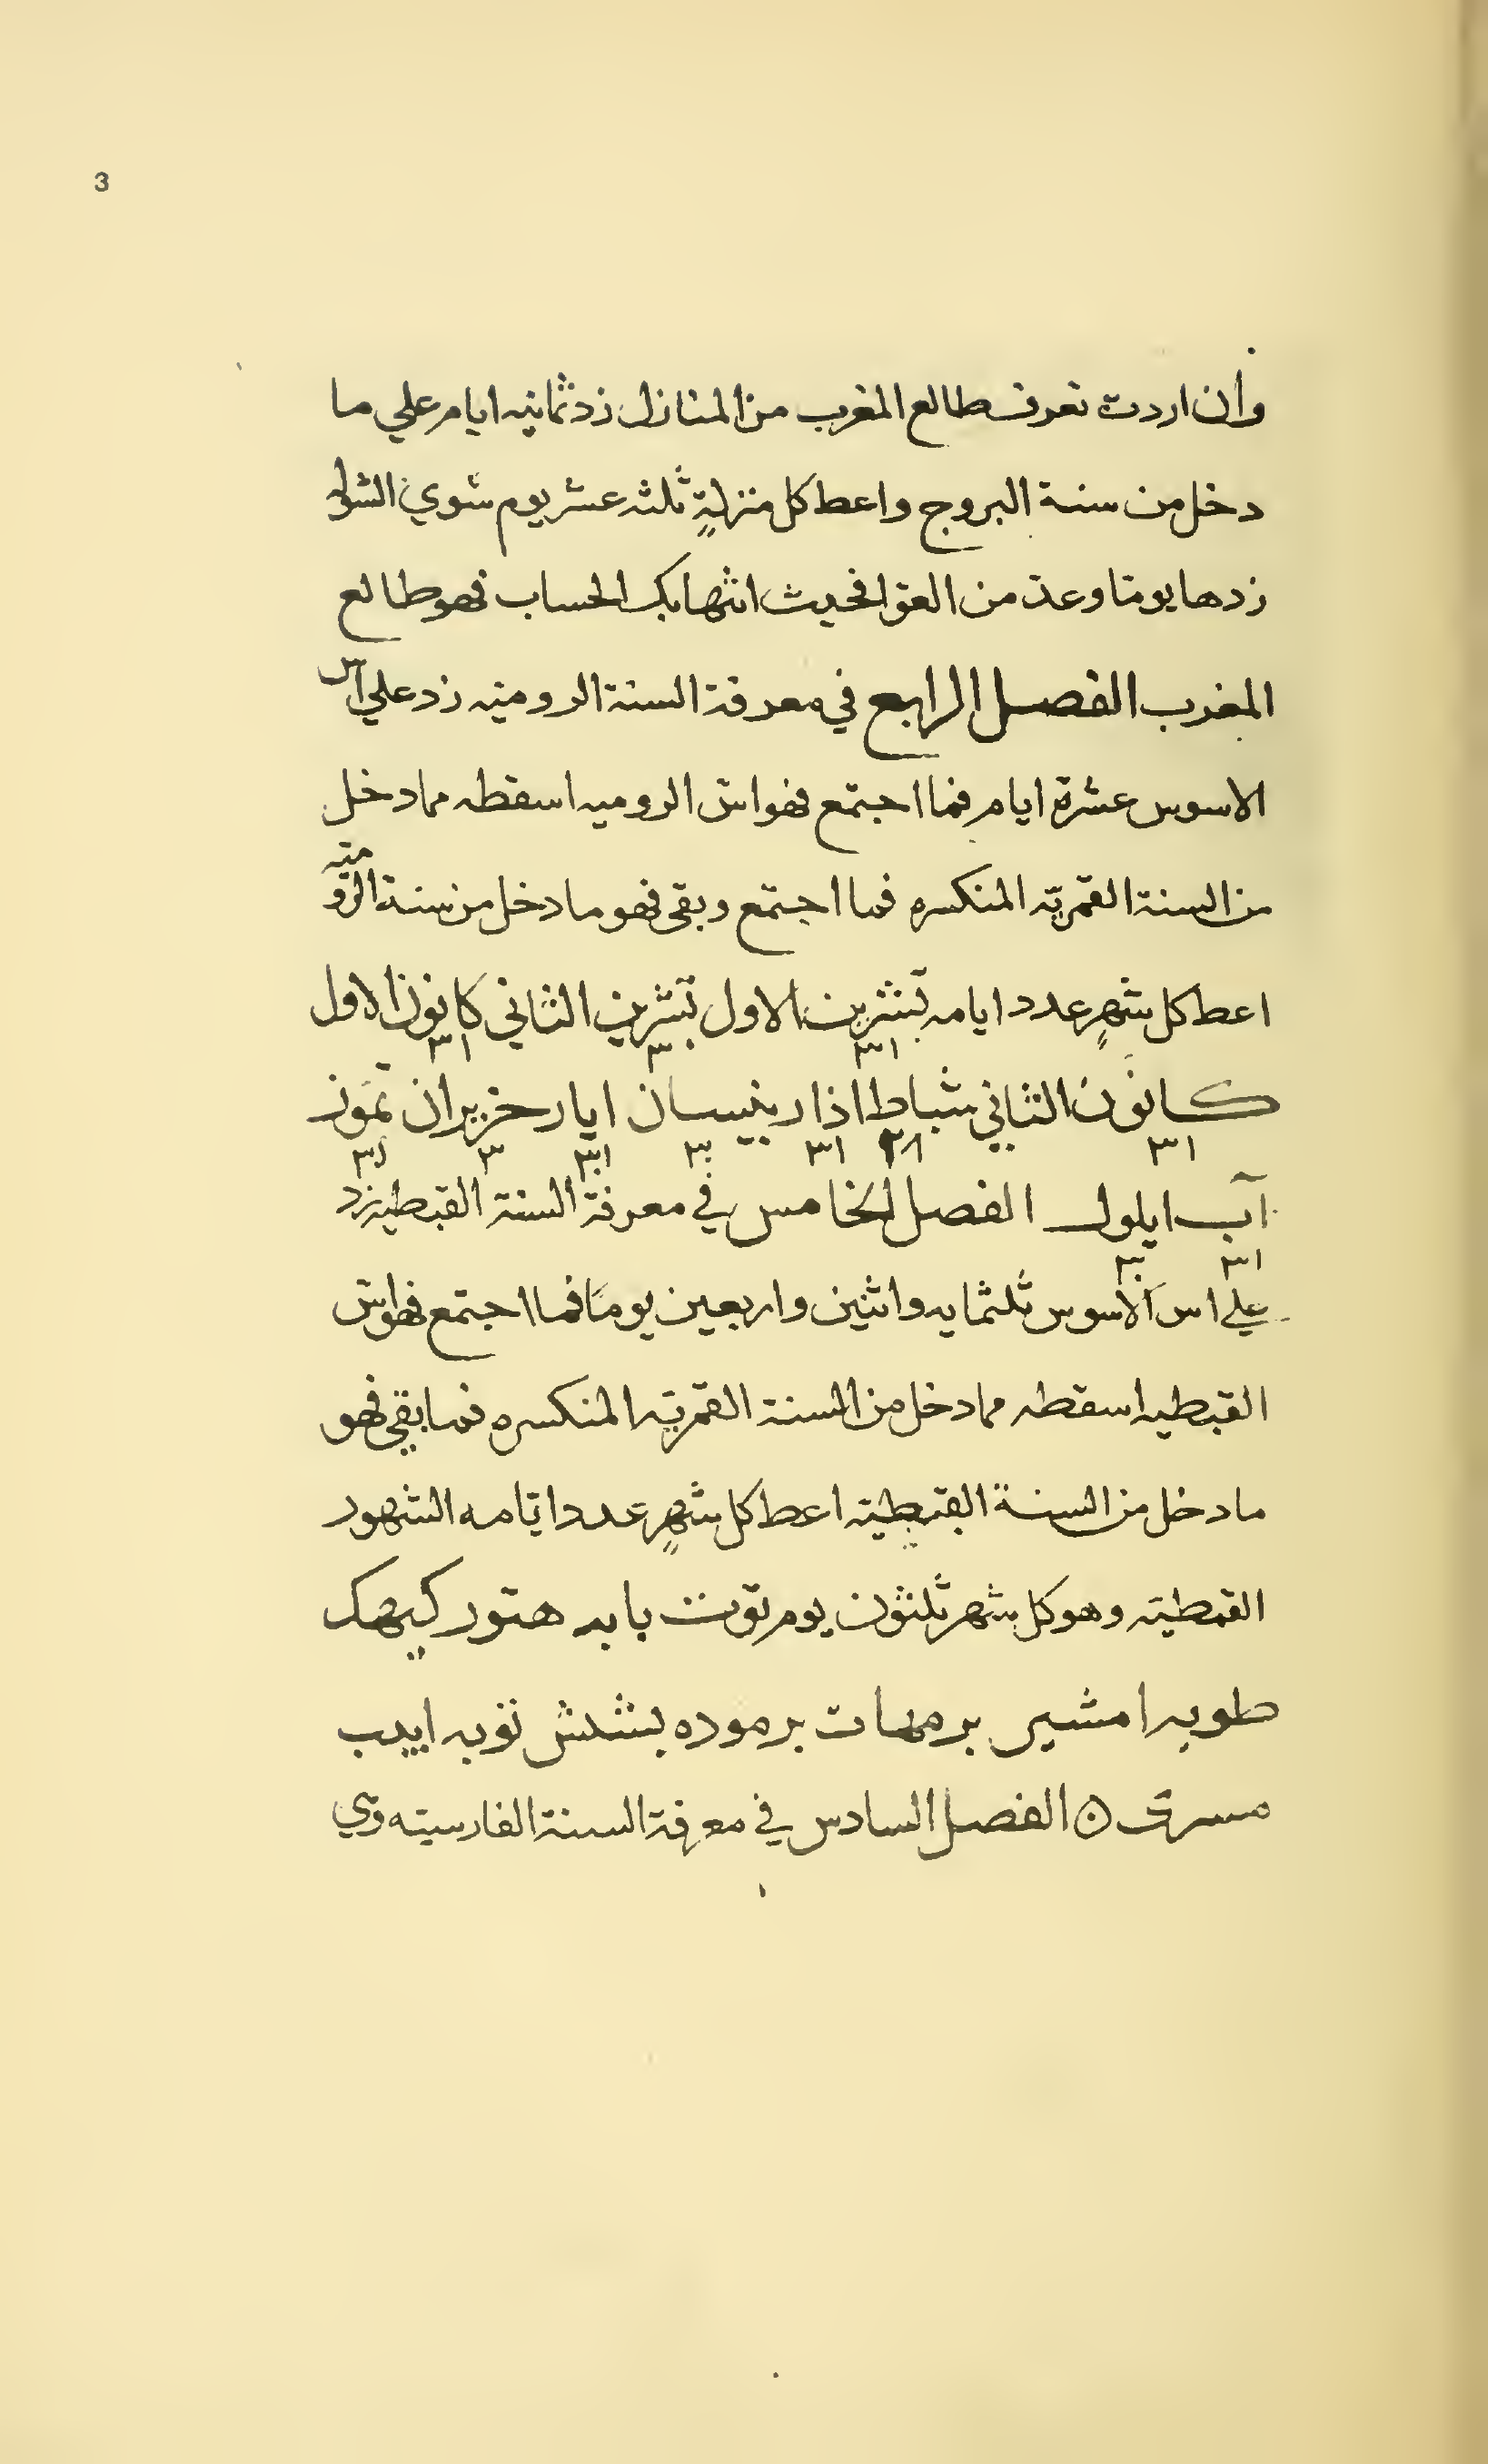 3
وان اردت تعرف طالع المغرب من المنازل زد ثمانيه ايام علي ما
دخل من سنة البروج واعط كل منزلةٍ ثلثه عشر يوم سَوي الشوله
زدها يومًا وعدّ من العوا فحيث انتها بك الحساب فهو طالع
المغرب الفصل الرابع في معرفة السنة الروميّه زد علي اس
الاسوس عشرة ايام فما اجتمع فهو اسّ الروميه اسقطه مما دخل
من السنة القمريّه المنكسره فما اجتمع وبقي فهو ما دخل من سنة الروميّه
اعط كل شهرٍ عدد ايامه تشرين الاول تشرين الثاني كانون الاول
٣١ ٣٠ ٣١
كانون الثاني شباط اذار نيسان ايار حزيران تموز
٣١ ٢٨ ٣١ ٣٠ ٣١ ٣٠ ٣١
آب ايلول الفصل الخامس في معرفة السنة القبطيه زد
٣١ ٣٠
علي اس الاسوس ثلثمايه واثنين واربعين يومًا فما اجتمع فهو اسّ
القبطيه اسقطه مما دخل من السنة القمريّه المنكسره فما بقي فهو
ما دخل من السنة القبطيّه اعط كل شهرٍ عدد ايّامه الشهور
القبطيّه وهو كل شهر ثلثون يوم توت بابه هتور كيهك
طوبه امشير برمهات برموده بشنش نؤبه ابيب
مسرى ه الفصل السادس في معرفة السنة الفارسيّه وهي